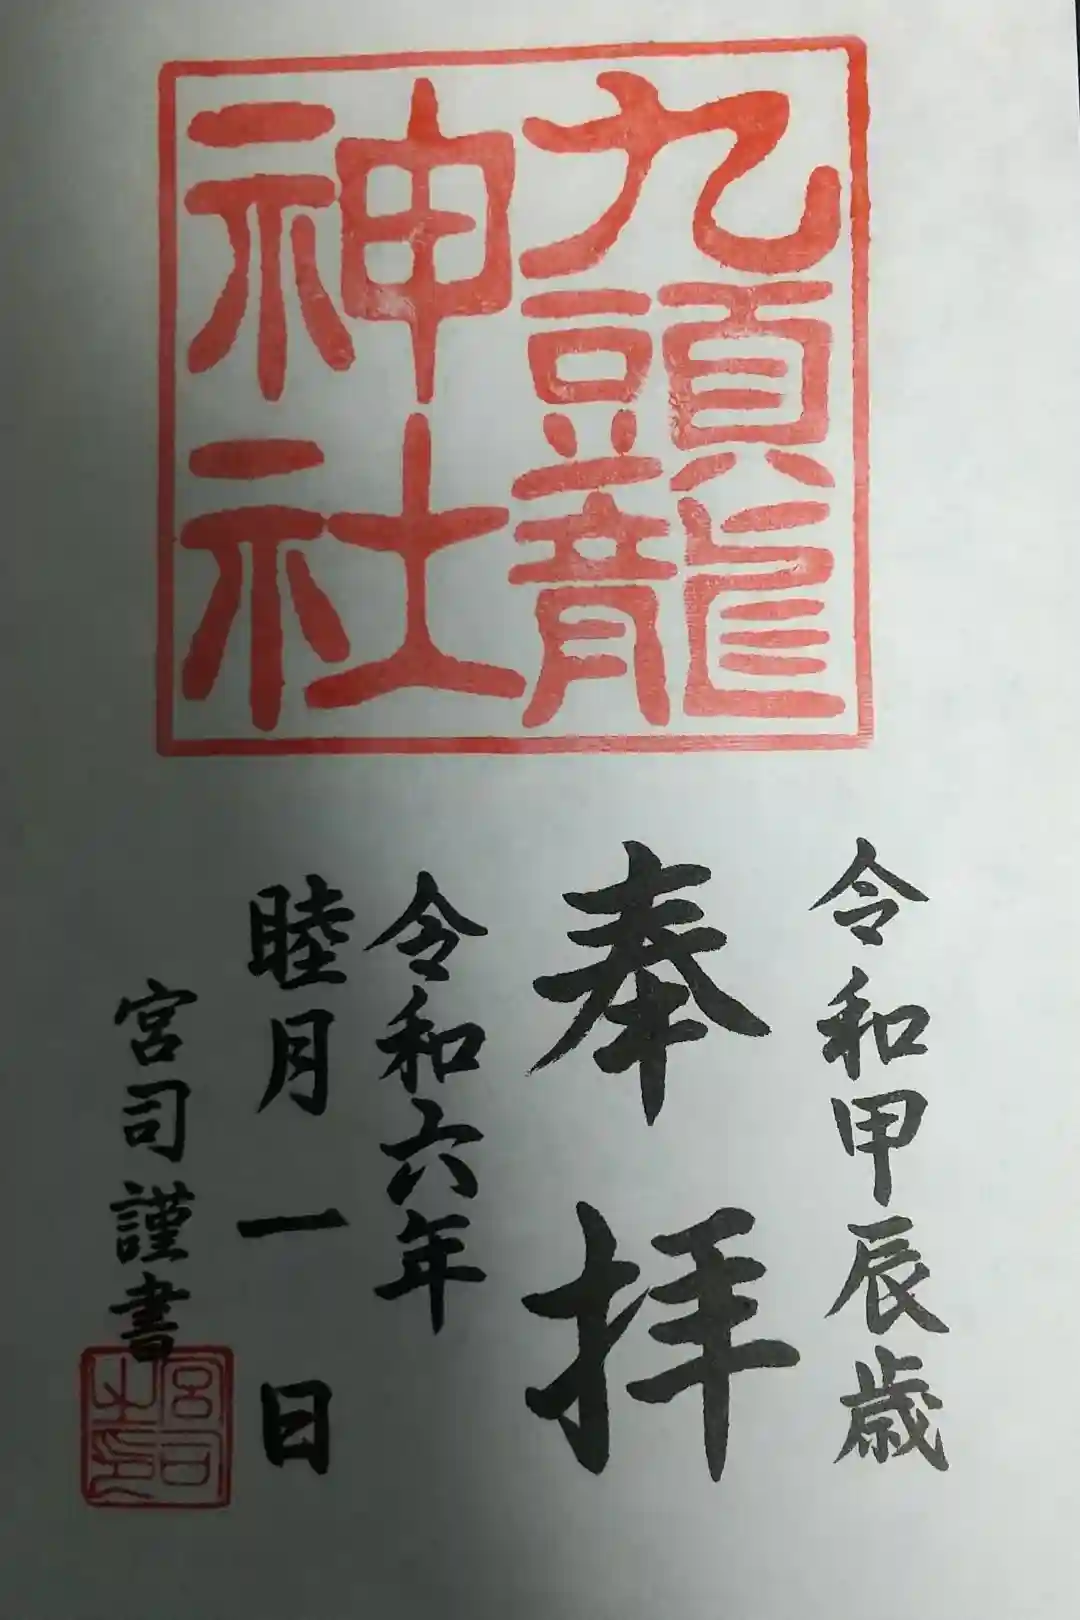 九頭龍
神社
令和甲辰歳
奉拝
令和六年
睦月一日
宮司謹書
宮司
之印